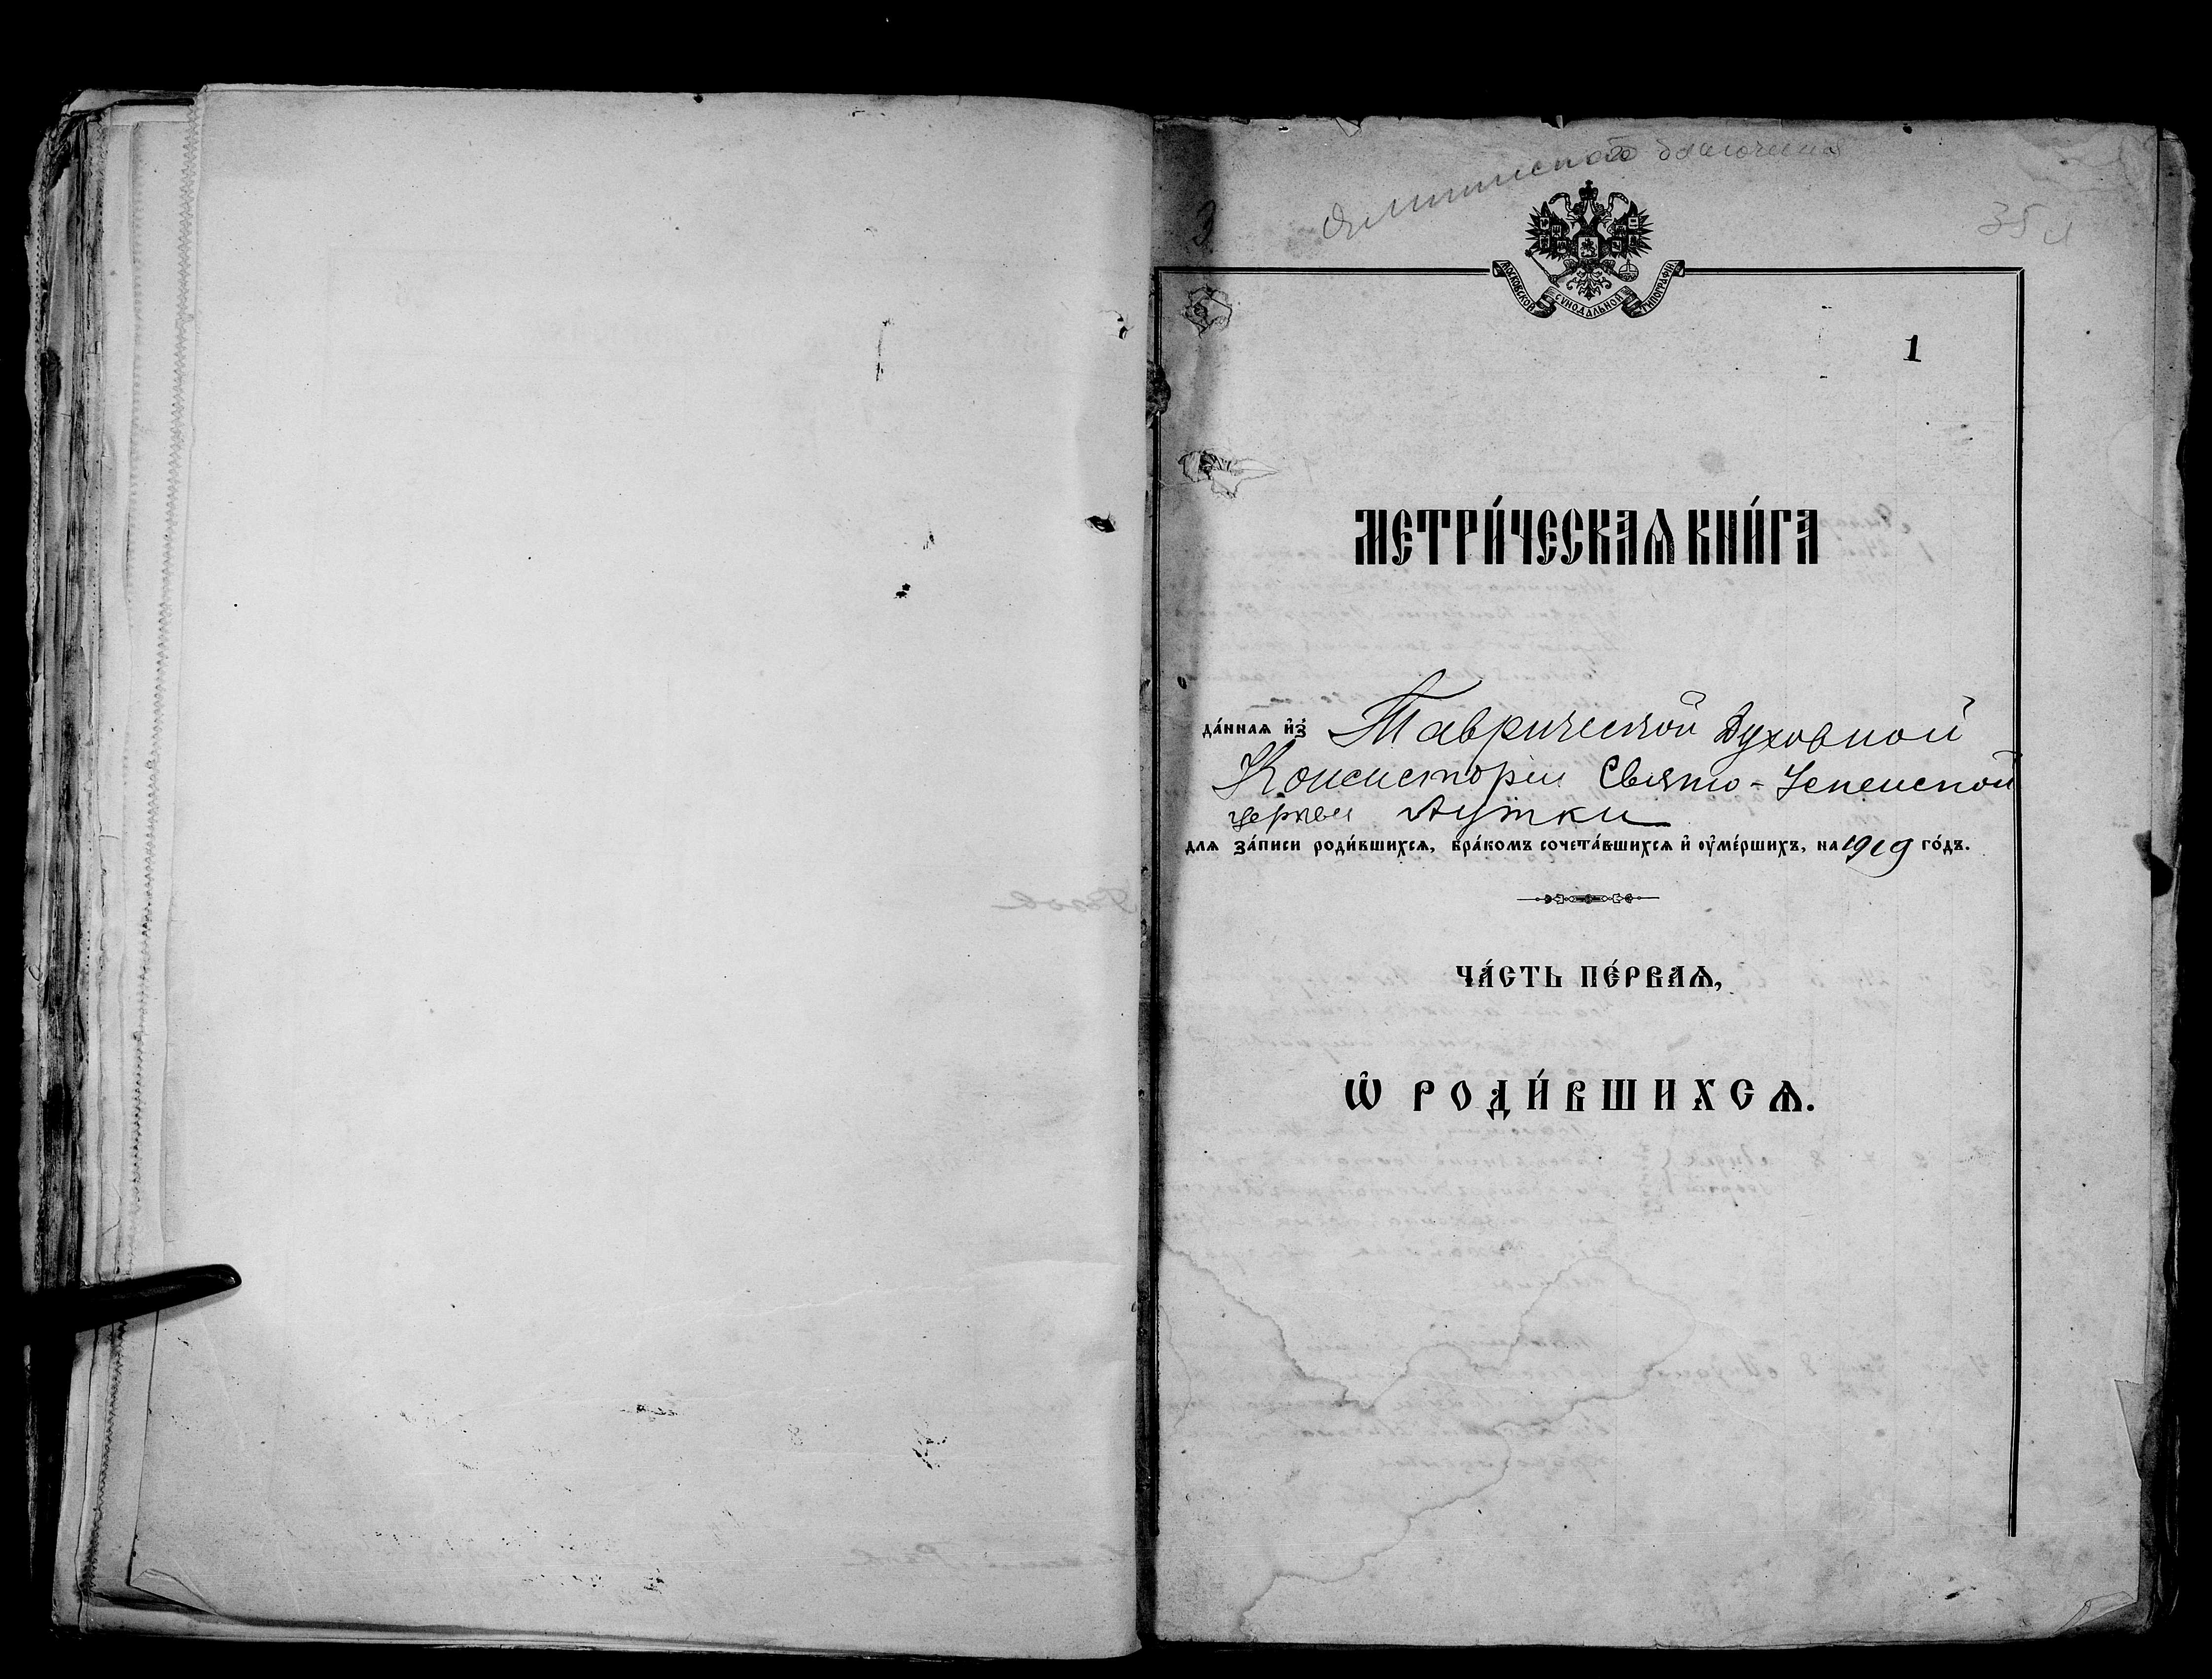 Ялтинского благочиния
35 л
МОСКОВСКОЙ СѴНОДАЛЬНОЙ ТИПОГРАФІИ
1
МЕТРИ́ЧЕСКАѦ КНИ́ГА
да́ннаѧ и҆з̾ Таврической Духовной
Консисторіи Свято-Успенской
церкви Аутки
для за́писи роди́вшихсѧ, бра́комъ сочета́вшихсѧ и҆ оу҆ме́ршихъ, на 1919 го́дъ.
ЧА́СТЬ ПЕ́РВАѦ,
Ѡ҆ РОДИ́ВШИХСѦ.